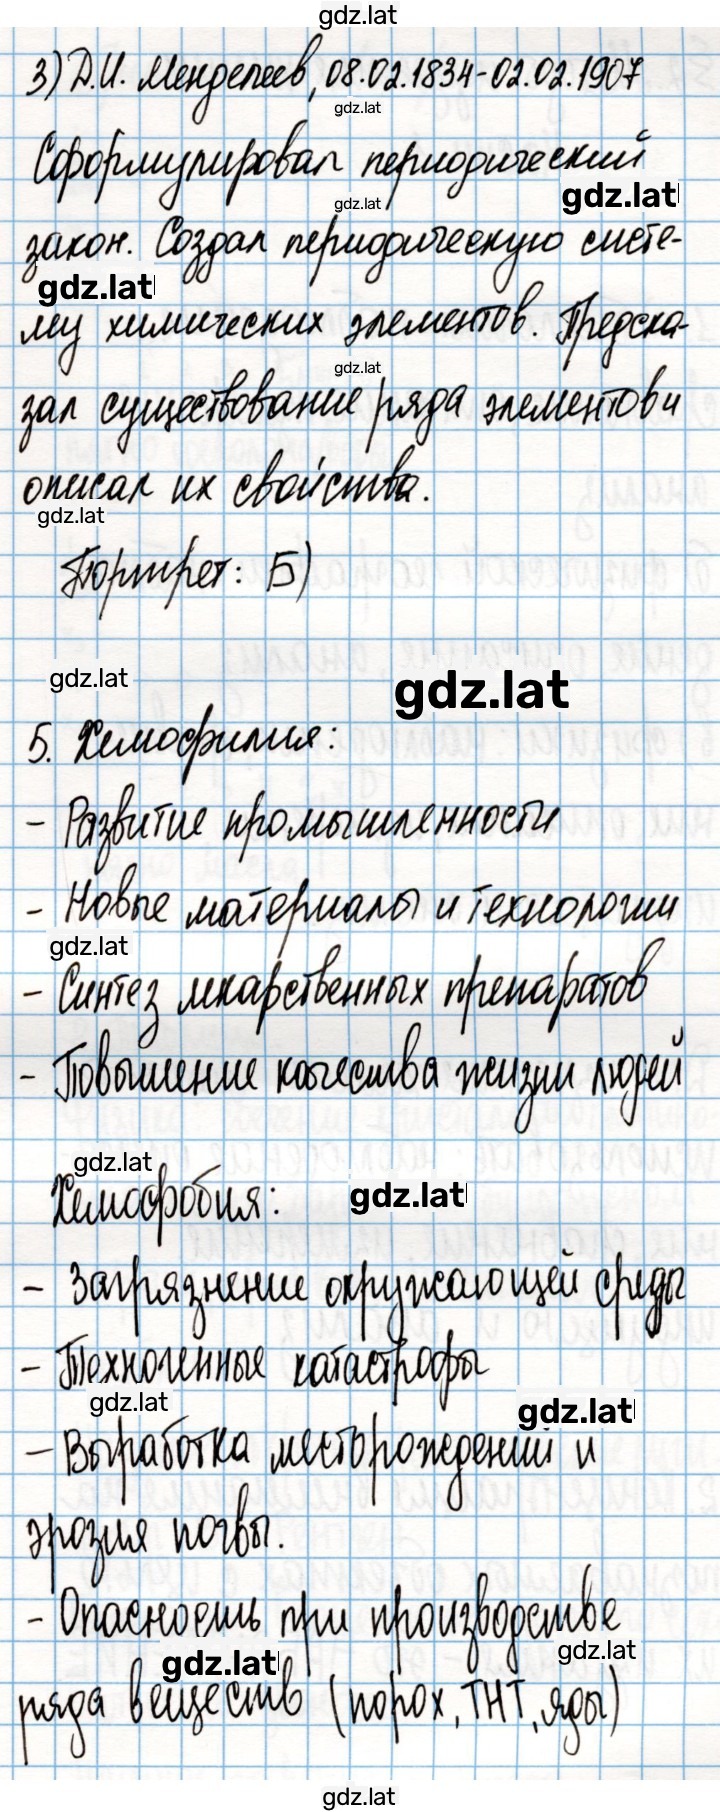 gdz.lat
3) Д.И. Менделеев, 08.02.1834-02.02.1907
gdz.lat
Сформулировал периодический
gdz.lat
gdz.lat
закон. Создал периодическую систе-
gdz.lat
му химических элементов. Предска-
gdz.lat
зал существование ряда элементов и
описал их свойства.
gdz.lat
Портрет: Б)
gdz.lat
gdz.lat
5. Хемофилия:
- Развитие промышленности
- Новые материалы и технологии
gdz.lat
- Синтез лекарственных препаратов
- Повышение качества жизни людей
gdz.lat
gdz.lat
Хемофобия:
- Загрязнение окружающей среды
- Техногенные катастрофы
gdz.lat
gdz.lat
- Выработка месторождений и
эрозия почвы.
- Опасность при производстве
gdz.lat
gdz.lat
ряда веществ (порох, ТНТ, яды)
gdz.lat